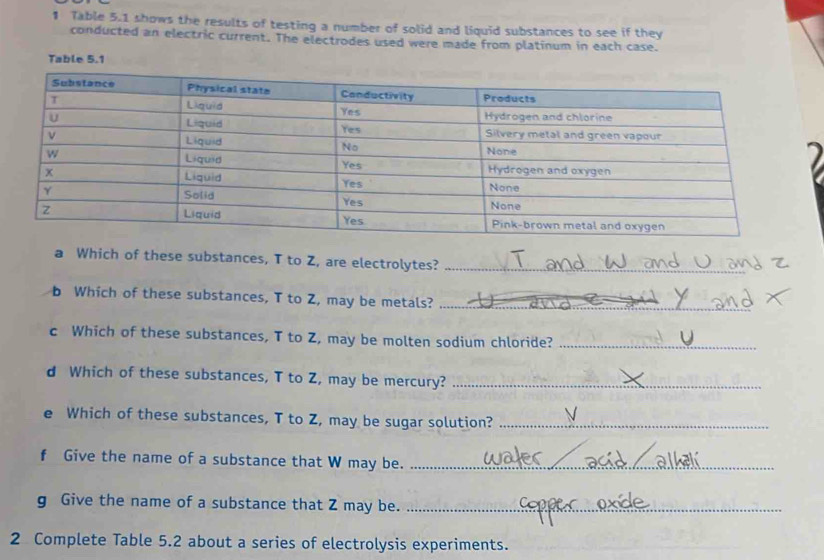 1 Table 5.1 shows the results of testing a number of solid and liquid substances to see if they
conducted an electric current. The electrodes used were made from platinum in each case.
Table 5.1
Substance Physical state Conductivity Products
T Liquid Yes Hydrogen and chlorine
U Liquid Yes Silvery metal and green vapour
V Liquid No None
W Liquid Yes Hydrogen and oxygen
X Liquid Yes None
Y Solid Yes None
Z Liquid Yes Pink-brown metal and oxygen
a Which of these substances, T to Z, are electrolytes? T and W and U and Z
b Which of these substances, T to Z, may be metals? Y and X
c Which of these substances, T to Z, may be molten sodium chloride? U
d Which of these substances, T to Z, may be mercury? X
e Which of these substances, T to Z, may be sugar solution? V
f Give the name of a substance that W may be. water / acid / alkali
g Give the name of a substance that Z may be. copper oxide
2 Complete Table 5.2 about a series of electrolysis experiments.